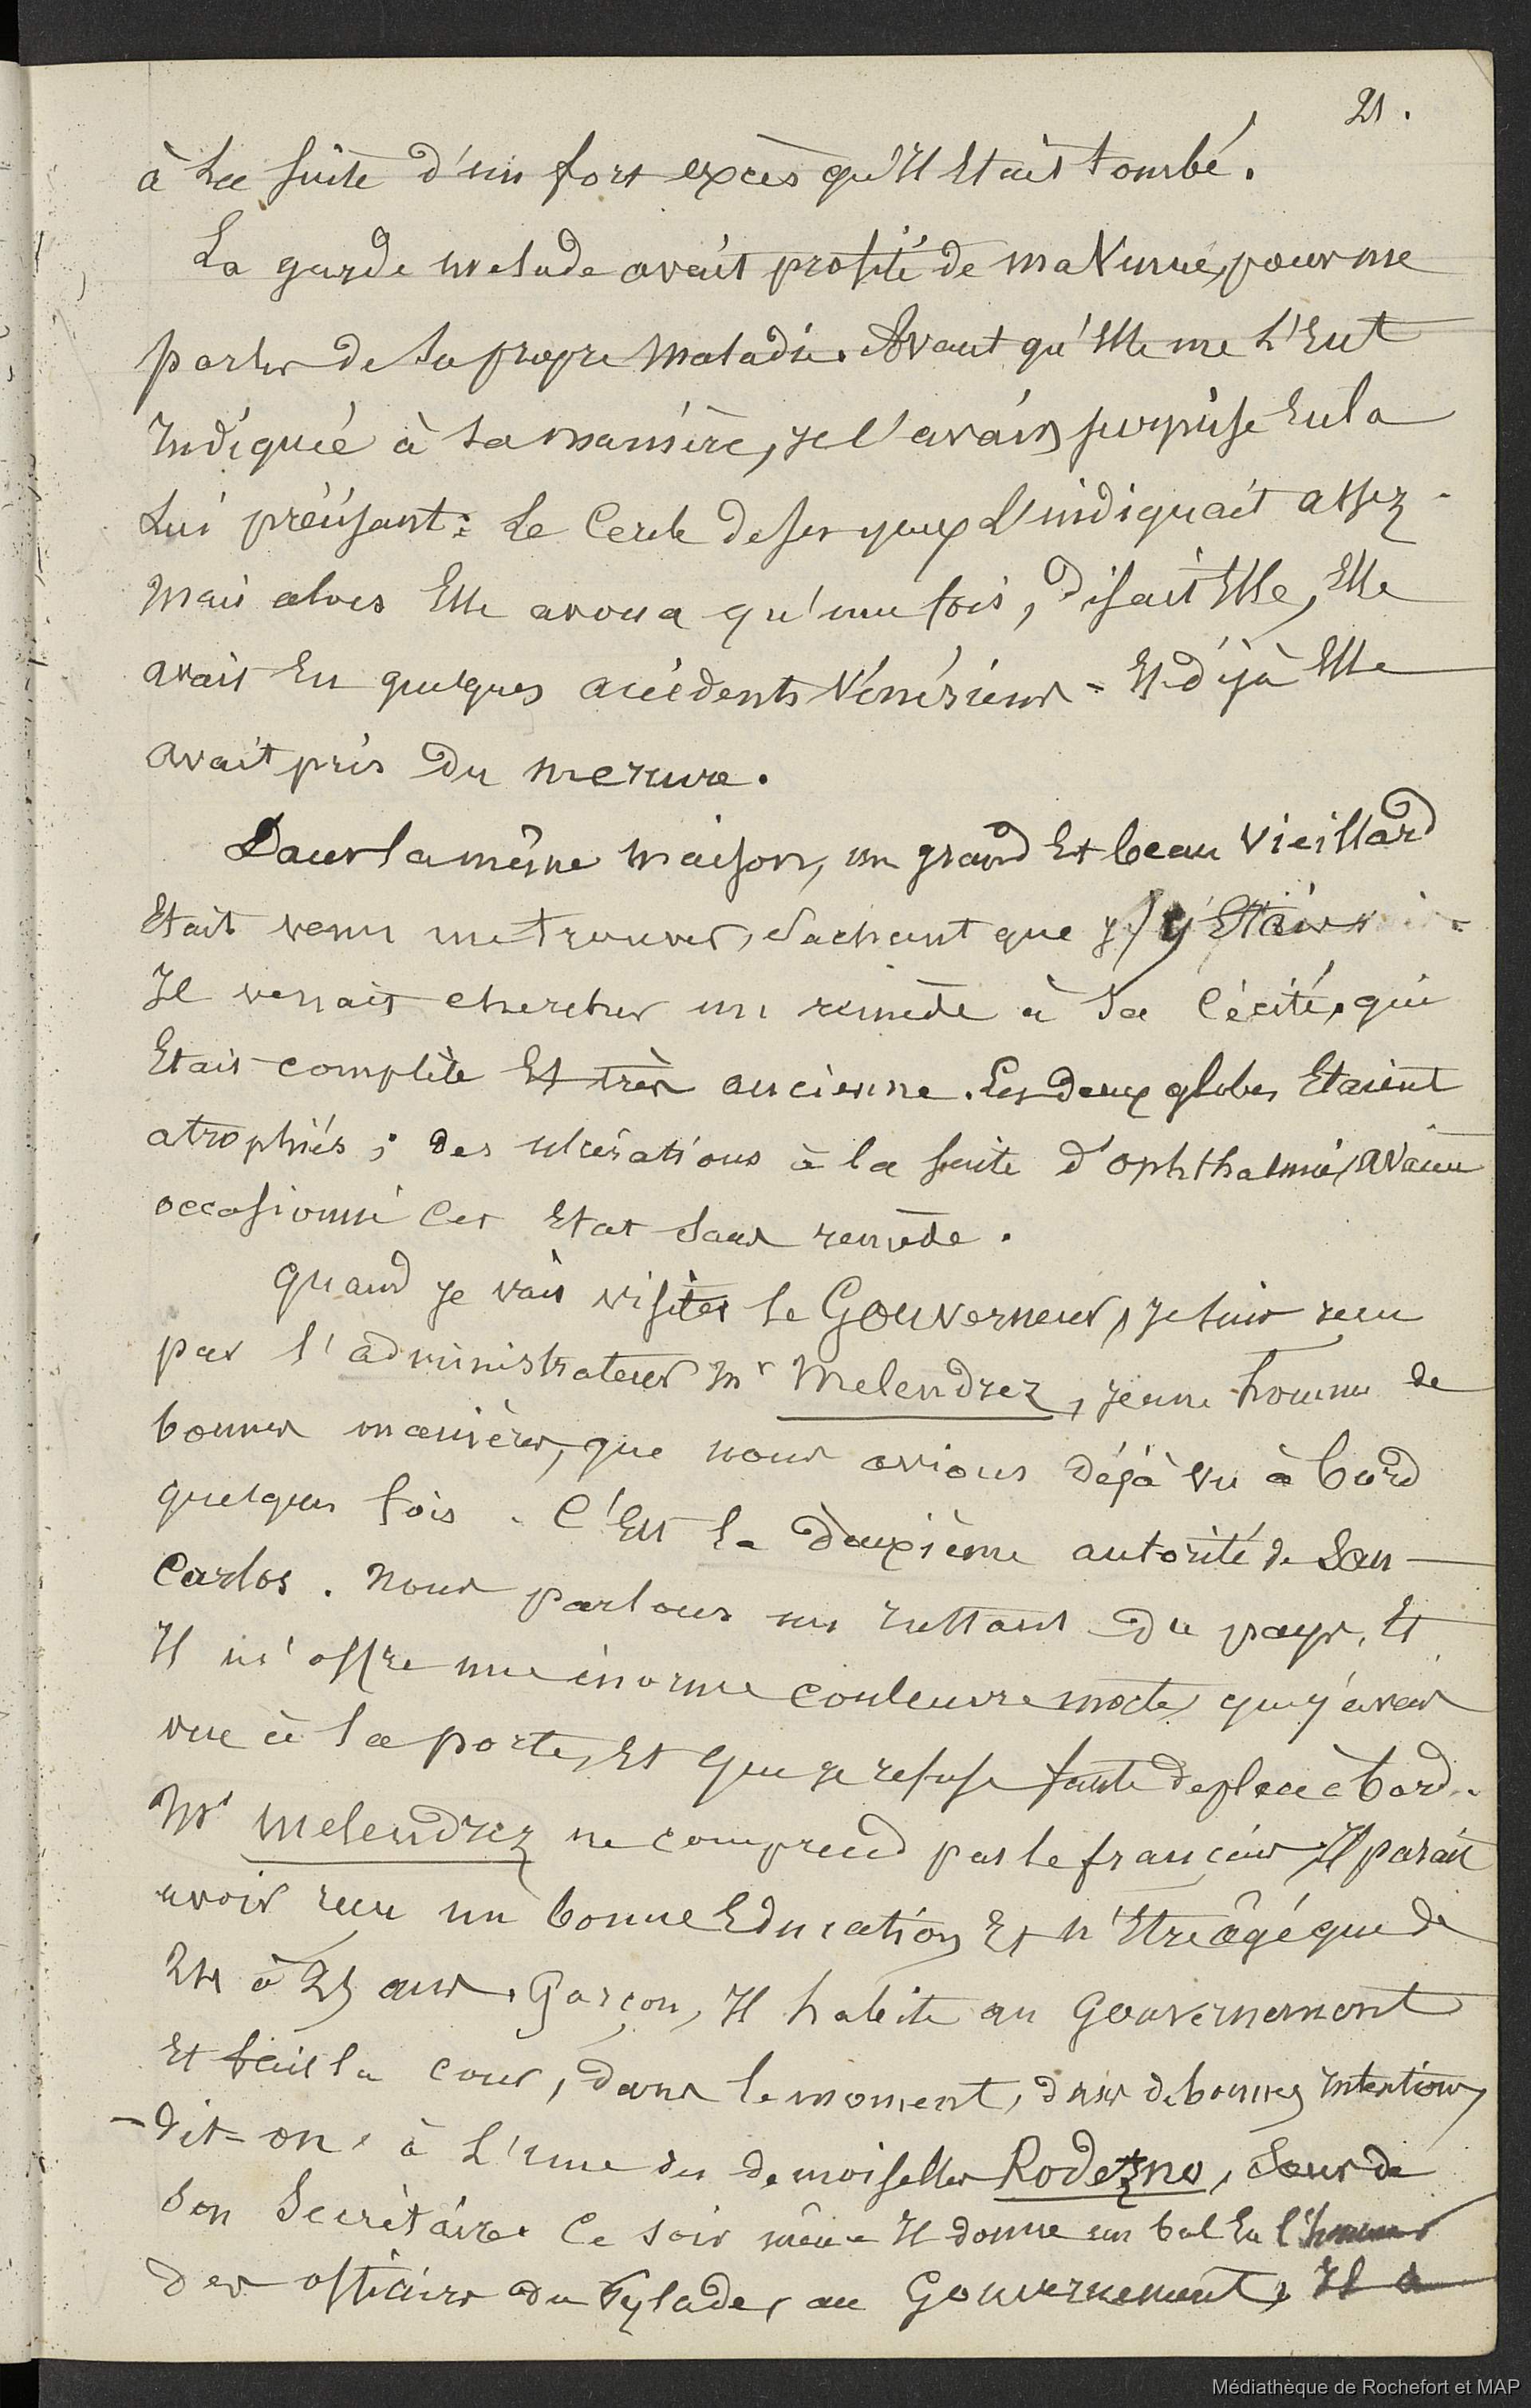 21.
à la suite d'un fort excès qu'Il Etait tombé.
La garde malade avait profité de ma Venue, pour me
parler de sa propre maladie. Avant qu'Elle me L'Eut
Indiquée à sa manière, je l'avais surprise En la
Lui précisant : Le Cercle de ses yeux L'indiquait assez -
Mais alors Elle avoua qu'une fois, disait Elle, Elle
avait Eu quelques accidents Vénériens - Et déjà Elle
avait pris du mercure.
Dans la même maison, un grand Et beau Vieillard
Etait venu me trouver, Sachant que j'y Etais
Il venait chercher un remède à sa Cécité, qui
Etait complète Et très ancienne. Les deux globes Etaient
atrophiés ; des ulcérations à la suite d'ophthalmie, avaient
occasionné Cet Etat sans remède.
Quand je vais visiter le Gouverneur, je suis reçu
par l'administrateur Mr Melendrez, jeune homme de
bonnes manières, que nous avions déjà vu à bord
quelques fois. C'Est la deuxième autorité de San
Carlos. Nous parlons un Instant du pays, Et
Il m'offre une énorme couleuvre morte, que j'avais
vue à la porte, Et que je refuse faute de place à bord.
Mr Melendrez ne comprend pas le français. Il parait
avoir reçu une bonne Education, Et n'Etre âgé que de
24 à 25 ans. Garçon, Il habite au Gouvernement
Et fait la cour, dans le moment, dans de bonnes Intentions,
- dit-on, à L'une des demoiselles Rodezno, Sœur de
son Secrétaire. Ce soir même Il donne un bal En l'honneur
des officiers du Pylade, au Gouvernement, Il a
Médiathèque de Rochefort et MAP